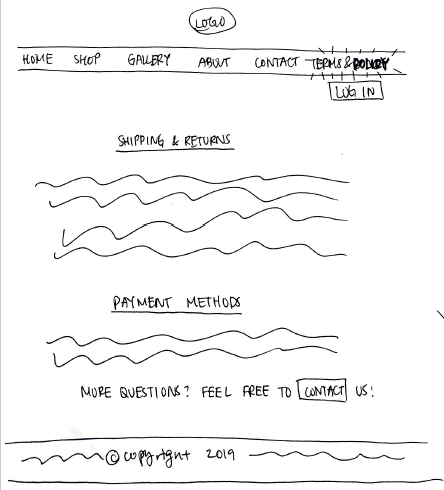 LOGO
HOME SHOP GALLERY ABOUT CONTACT TERMS & POLICY
LOG IN
SHIPPING & RETURNS
PAYMENT METHODS
MORE QUESTIONS? FEEL FREE TO CONTACT US!
© copyright 2019